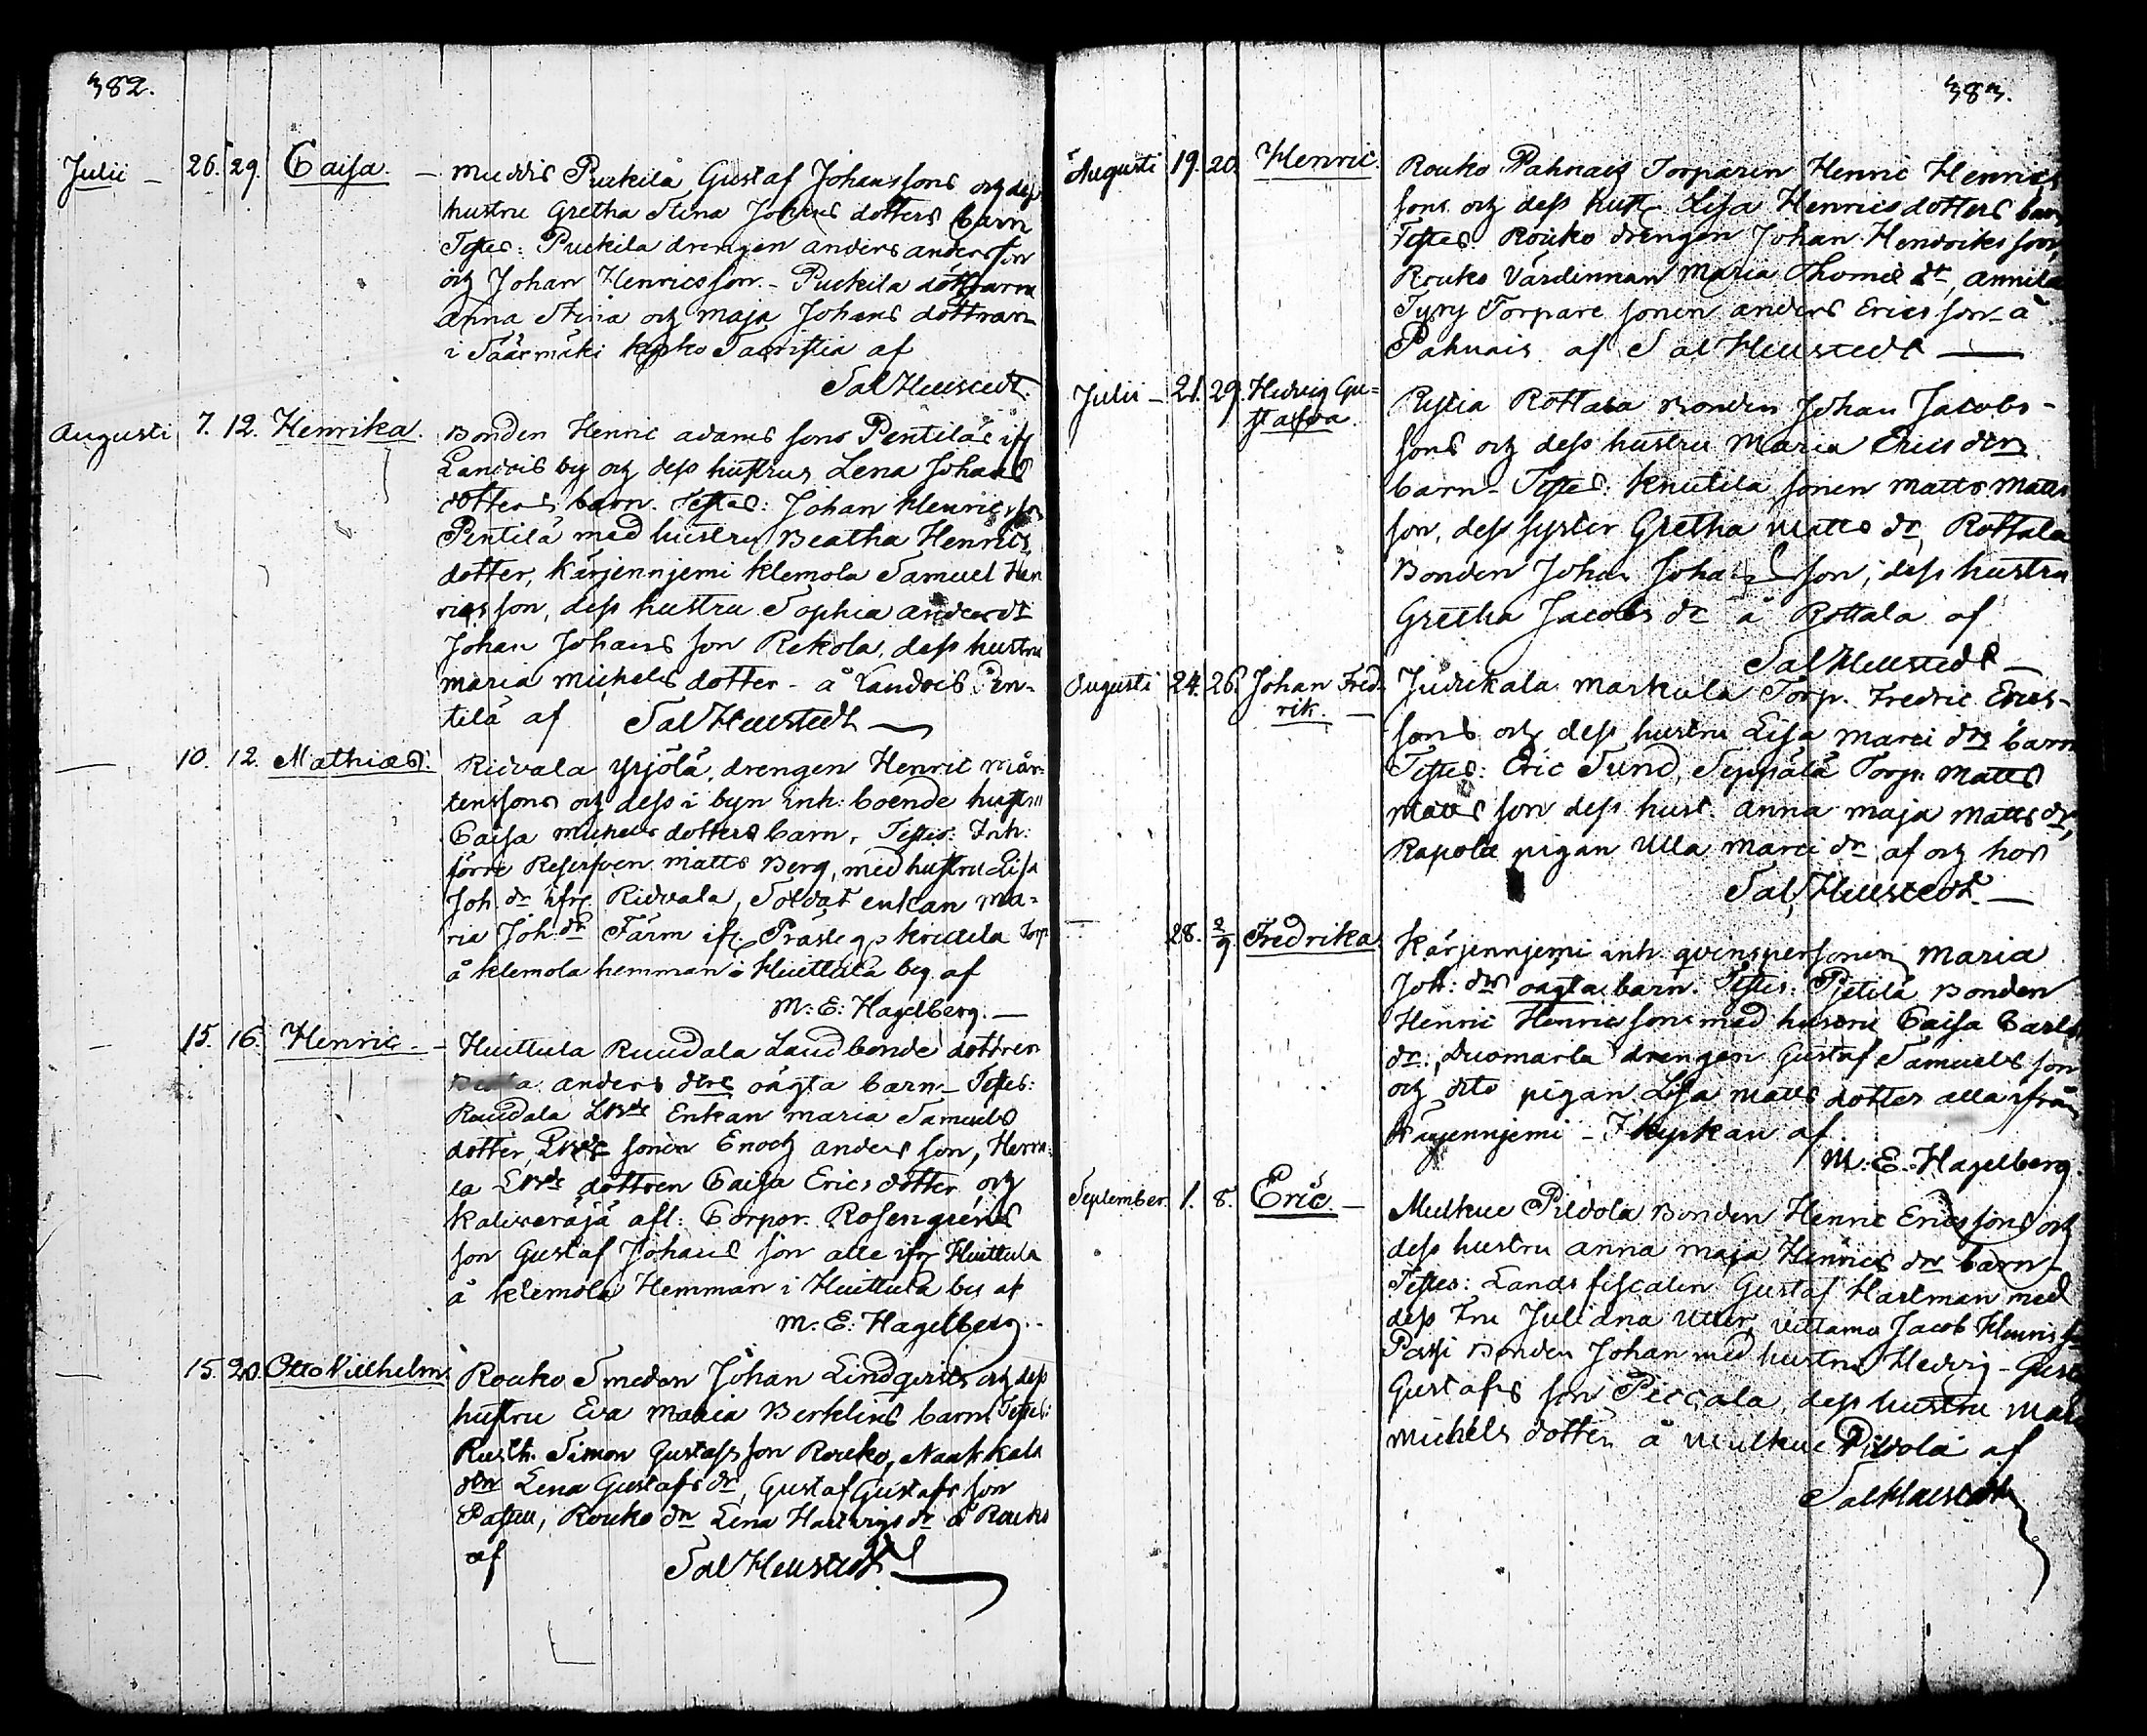 382.
Julii – 26. 29. Caisa. – Muddis Puckila Gustaf Johanssons och dess
hustru Gretha Stina Johans dotters barn
Testes: Puckila drengen anders andersson
och Johan Henricsson. – Puckila döttrarna
anna Stina och maja Johans döttrar
i Säärmäki kyrko Sacristia af
Sal Hellstedt.
Augusti 7. 12. Henrika. Bonden Henric adams sons Pentiläs ifr
Landois by och dess hustrus Lena Johans
dotters barn. Testes: Johan Henricsson
Pentilä med hustru Beatha Henrics
dotter, Kärjennjemi Klemola Samuel Hen
ricsson, dess hustru Sophia anders dr
Johan Johans son Rekola, dess hustru
maria michels dotter – å Landois Pen-
tilä af Sal Hellstedt —
— 10. 12. Mathias. Ridvala Yrjölä, drengen Henric Mår-
tenssons och dess i byn Inh: boende hustru
Caisa michels dotters barn, Testes: Inh:
förre Reserven matts Berg, med hustru Lisa
Joh. dr ifr. Ridvala, Soldat enkan Ma-
ria Joh. dr Färm ifr. Knutila Torp
å Klemola hemman i Huittula by af
M: E: Hagelberg. —
— 15. 16. Henric. – Huittula Ruudala Landbonde dottren
anders dtrs oägta barn – Testes:
Ruudala Lbds Enkan maria Samuels
dotter, Lbds sonen Enoch anders son, Herra-
la Lbds dottren Caisa Erics dotter, och
afl: Corpor. Rosengréns
son Gustaf Johans son alle ifr Huittula
å Klemola Hemman i Huittula by af
M: E: Hagelberg. -
— 15. 20. Otto Villhelm. Rouko Smeden Johan Lindqvists och dess
hustru Eva Maria Berklins barn Testes:
Rusth. Simon Gustafs son Rouko, Naakkala
dtn Lena Gustafs dr, Gustaf Gustafs son
Pasuu, Rouko dn Lena Hartvigs dr å Rouko
af Sal Hellstedt
383.
Augusti 19. 20. Henric. Rouko Pahnais Torparen Henric Henrics
sons och dess hust. Lisa Henricsdotters barn
Testes: Rouko drengen Johan Hendriksson,
Rouko Värdinnan Maria Thomæ dr, Annila
Tyry Torpare sonen anders Ericsson – å
Pahnais af Sal Hellstedt —
Julii – 21. 29. Hedvig Gu= Rottala Bonden Johan Jacobs-
stafva. sons och dess hustru Maria Erics drs
barn – Testes: Knutila sonen matts matts
son, dess syster Gretha matts dr, Rottala
Bonden Johan Johansson, dess hustru
Gretha Jacobs dr å Rottala af
Sal Hellstedt —
Augusti 24. 26. Johan Fred- Judikala Markula Torp. Fredric Erics-
rik. — sons och dess hustru Lisa Marci drs barn
Testes: Eric Sund, Seppälä Torp. Matts
Matts son dess hust. anna maja Matts dr,
Rapola pigan Ulla Marci dr af och hos
Sal, Hellstedt. —
— 28. 2/9 Fredrika. Kärjennjemi inh. qvinspersonen Maria
Joh: drs oägta barn. Testes: Pietilä Bonden
Henric Henricsson med hustru Caisa Carls
dr., drengen Gustaf Samuels son
och dito pigan Lisa matts dotter alla ifrån
Kärjennjemi – I kyrkan af
M: E: Hagelberg
September. 1. 8. Eric. – Mulkue Pildola Bonden Henric Ericssons och
dess hustru anna maja Henrics drs barn –
Testes: Lands fiscalen Gustaf Hartman med
dess Fru Juliana Utter, Vittamo Jacob Henrics son
Passi Bonden Johan med hustru Hedvig – Gust
Gustafs son Piccala, dess hustru Maria
michels dotter å Mulkue Pildola af
Sal Hellstedt